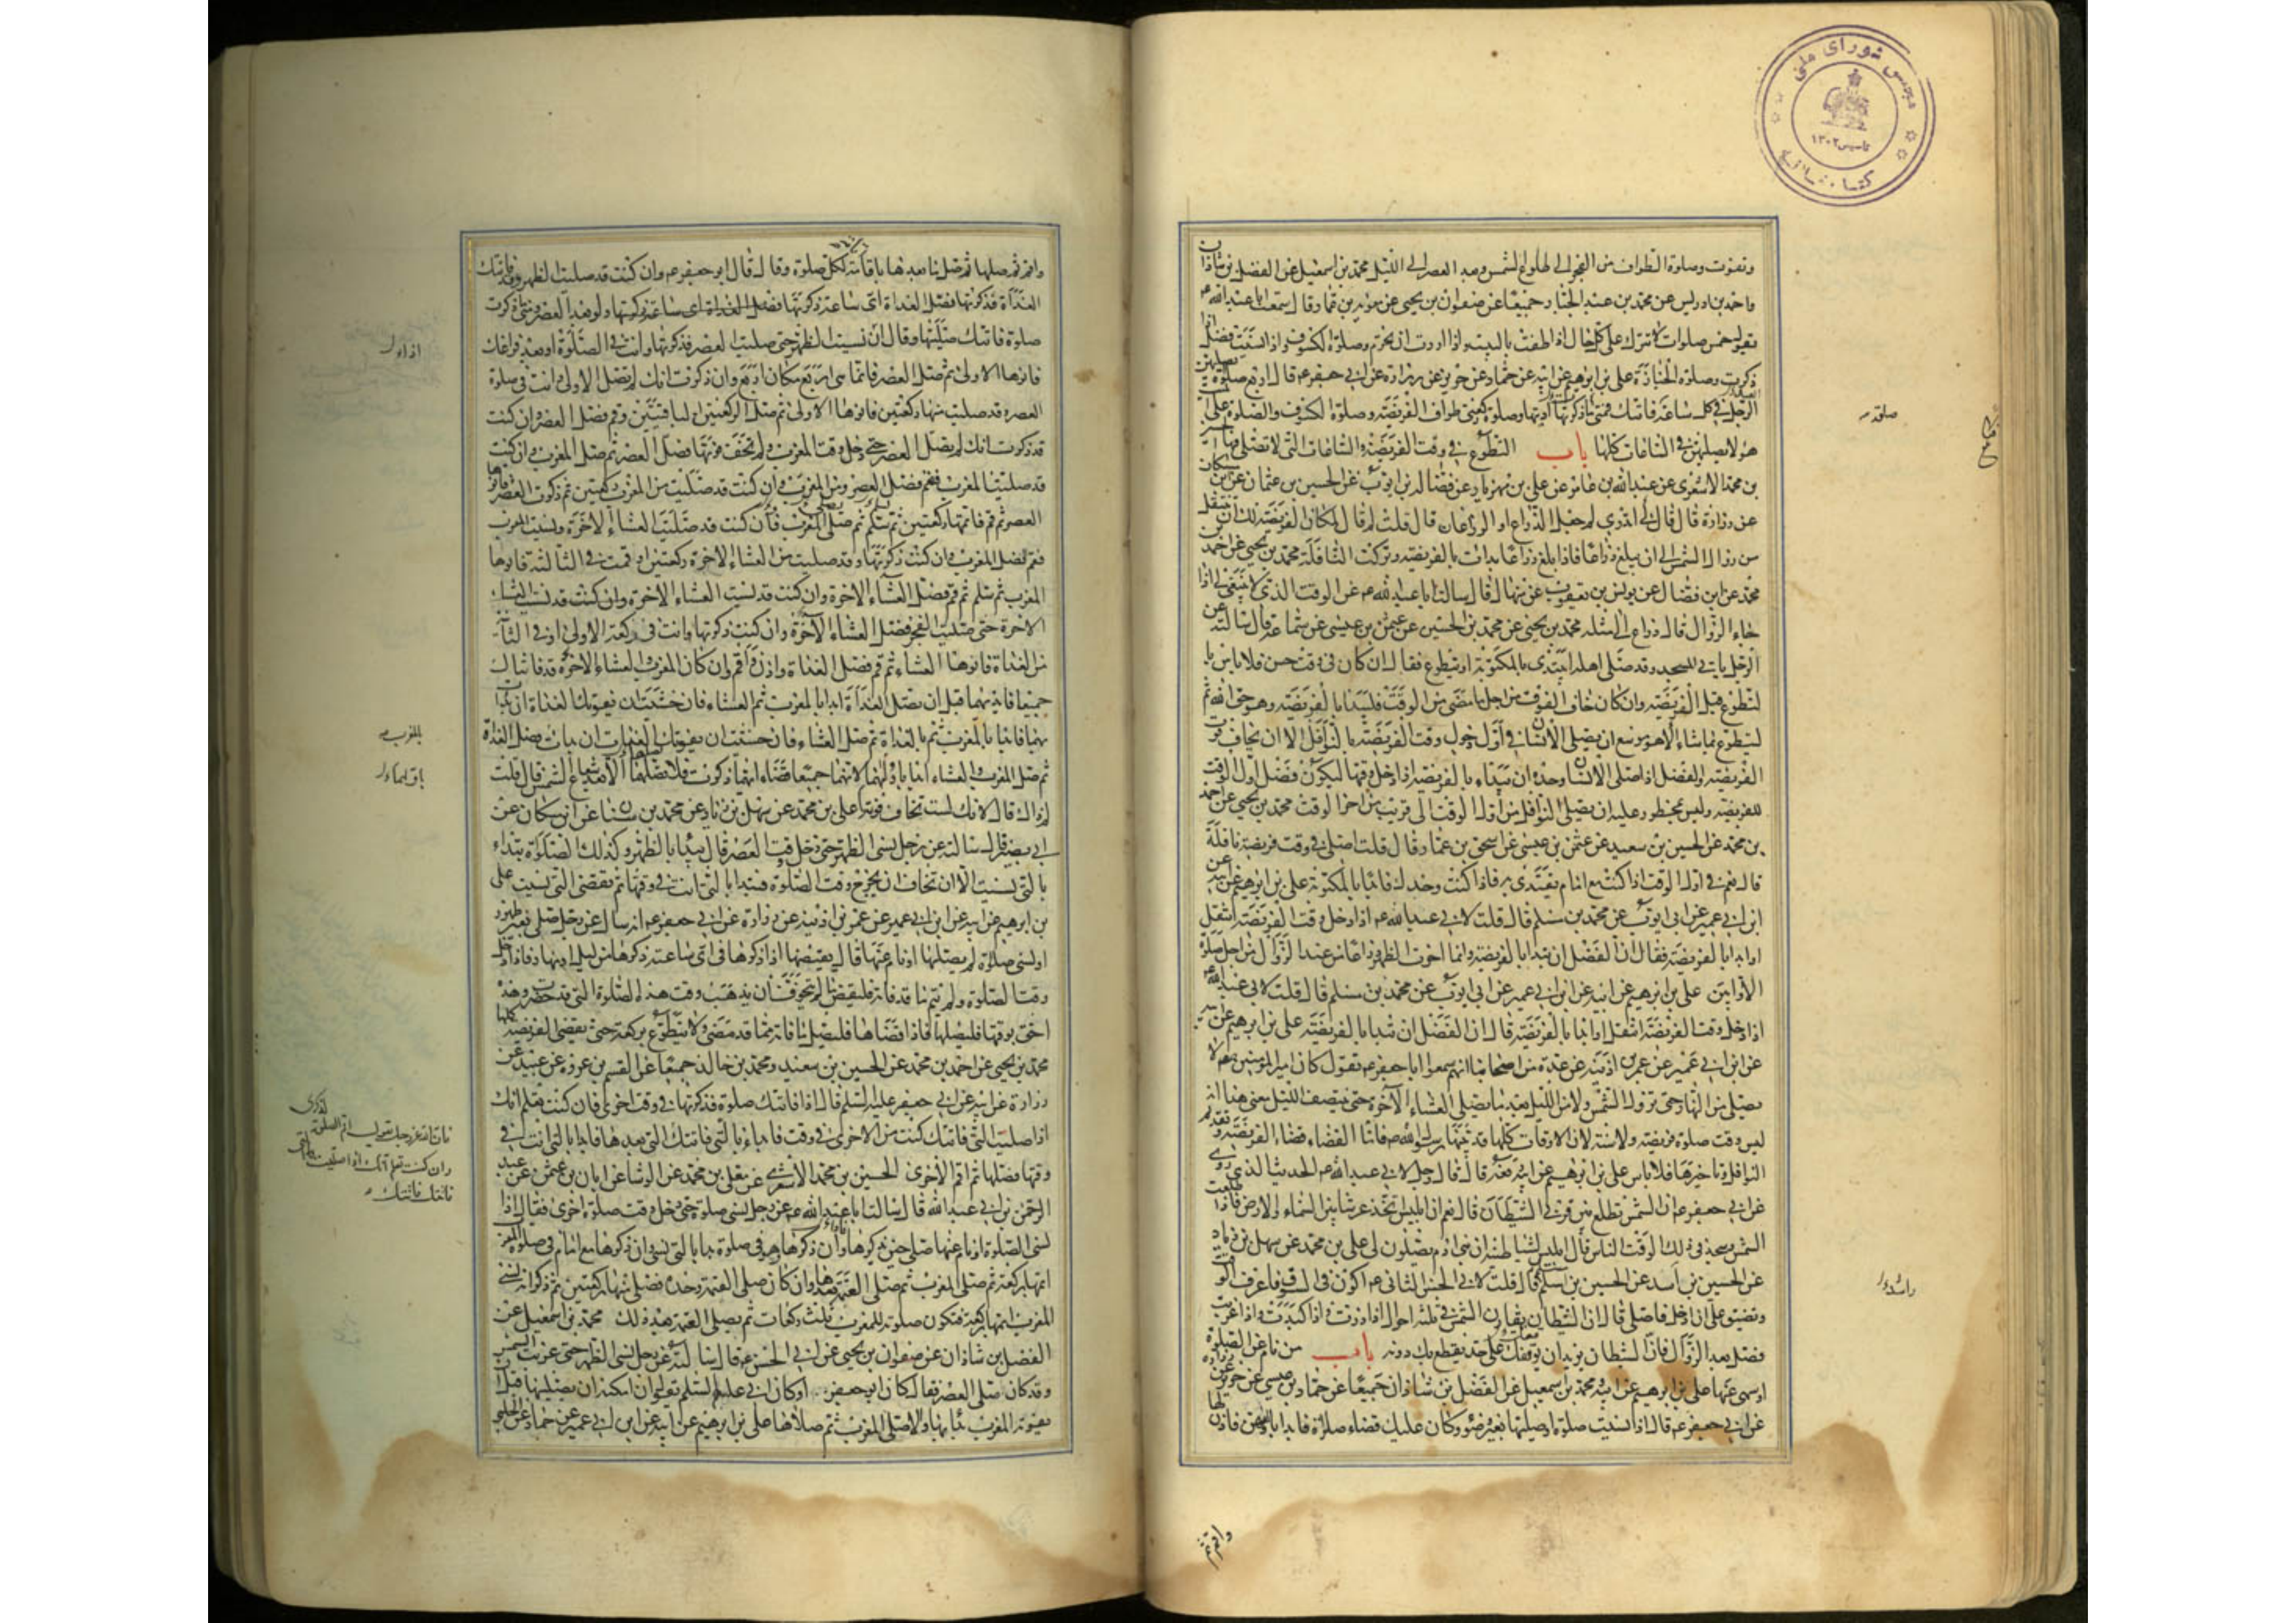 مجلس شورای ملی
تاسیس ۱۳۰۲
کتابخانه
وتفوت وصلوة الطواف من الفجر الى طلوع الشمس وبعد العصر الى الليل محمد بن اسمعيل عن الفضل بن شاذان
واحمد بن ادريس عن محمد بن عبد الجبار جميعا عن صفوان بن يحيى عن معوية بن عمار قال سمعت ابا عبد الله ع
يقول خمس صلوات لا تترك على كل حال اذا طفت بالبيت واذا اردت ان تحرم وصلوة الكسوف واذا نسيت فصل اذا
ذكرت وصلوة الجنازة على بن ابرهيم عن ابيه عن حماد عن حريز عن زرارة عن ابي جعفر ع قال اربع صلوة يصليهن
الرجل في كل ساعة فاتتك فمتى ذكرتها اديتها وصلوة ركعتي طواف الفريضة وصلوة الكسوف والصلوة على
هؤلاء يصليهن في الساعات كلها باب التطوع في وقت الفريضة والساعات التي لا تصلى فيها
بن محمد الاشعرى عن عبد الله بن عامر عن على بن مهزيار عن فضالة بن ايوب عن الحسين بن عثمان عن ابن مسكان
عن زرارة قال قال لى اتدري لم جعل الذراع او الذراعان قال قلت لم قال لمكان الفريضة لك ان تتنفل
من زوال الشمس الى ان يبلغ ذراعا فاذا بلغ ذراعا بدات بالفريضة وتركت النافلة محمد بن يحيى عن احمد بن
محمد عن ابن فضال عن يونس بن يعقوب عن منهال قال سالت ابا عبد الله ع عن الوقت الذي لا ينبغى لى اذا
جاء الزوال قال ذراع الى مثله محمد بن يحيى عن محمد بن الحسين عن عثمن بن عيسى عن سماعة قال سالته عن
الرجل ياتي المسجد وقد صلى اهله ايبتدى بالمكتوبة او يتطوع فقال ان كان في وقت حسن فلا باس با
لتطوع قبل الفريضة وان كان خاف الفوت من اجل ما مضى من الوقت فليبدا بالفريضة وهو حق الله ثم
ليتطوع بما شاء الا هو موسع ان يصلى الانسان في اول دخول وقت الفريضة بالنوافل الا ان يخاف فوت
الفريضة والفضل اذا صلى الانسان وحده ان يبداء بالفريضة اذا دخل وقتها ليكون فضل اول الوقت
للفريضة وليس بمحظور عليه ان يصلى النوافل من اول الوقت الى قريب من اخر الوقت محمد بن يحيى عن احمد
بن محمد عن الحسين بن سعيد عن عثمن بن عيسى عن اسحق بن عمار قال قلت اصلى في وقت فريضة نافلة
قال نعم في اول الوقت اذا كنت مع امام يقتدى به فاذا كنت وحدك فابدا بالمكتوبة على بن ابرهيم عن ابيه عن
ابن ابي عمير عن ابي ايوب عن محمد بن مسلم قال قلت لابي عبد الله ع اذا دخل وقت الفريضة اتنفل
او ابدا بالفريضة فقال ان الفضل ان تبدا بالفريضة وانما اخرت الظهر ذراعا من عند الزوال من اجل صلوة
الاوابين على بن ابرهيم عن ابيه عن ابن ابي عمير عن ابي ايوب عن محمد بن مسلم قال قلت لابي عبد الله ع
اذا دخل وقت الفريضة اتنفل او ابدا بالفريضة قال ان الفضل ان تبدا بالفريضة على بن ابرهيم عن ابيه
عن ابن ابي عمير عن عمر بن اذينة عن عدة من اصحابنا انهم سمعوا ابا جعفر ع يقول كان امير المؤمنين ع لا
يصلى من النهار حتى تزول الشمس ولا من الليل بعد ما يصلى العشاء الاخرة حتى ينتصف الليل معنى هذا انه
ليس وقت صلوة فريضة ولا سنة لان الاوقات كلها قد بينها رسول الله ص فاما القضاء قضاء الفريضة وتقديم
النوافل وتاخيرها فلا باس على بن ابرهيم عن ابيه رفعه قال قال رجل لابي عبد الله ع الحديث الذي روى
عن ابي جعفر ع ان الشمس تطلع بين قرني الشيطان قال نعم ان ابليس اتخذ عرشا بين السماء والارض فاذا طلعت
الشمس وسجد في ذلك الوقت الناس قال ابليس لشياطينه ان بني ادم يصلون لى على بن محمد عن سهل بن زياد
عن الحسين بن اسد عن الحسين بن مسلم قال قلت لابي الحسن الثاني ع اكون في السوق فاعرف الوقت
ويضيق على ان ادخل فاصلى قال ان الشيطان يقارن الشمس في ثلثة احوال اذا ذرت واذا كبدت واذا غربت
فصل بعد الزوال فان الشيطان يريد ان يوقفك على حد يقطع بك دونه باب من نام عن الصلوة
او سهى عنها على بن ابرهيم عن ابيه ومحمد بن اسمعيل عن الفضل بن شاذان جميعا عن حماد بن عيسى عن حريز عن زرارة
عن ابي جعفر ع قال اذا نسيت صلوة او صليتها بغير وضوء وكان عليك قضاء صلوات فابدا باولهن فاذن لها
صلوة
واقم ثم
واقم ثم صلها ثم صل ما بعدها باقامة لكل صلوة وقال قال ابو جعفر ع وان كنت قد صليت الظهر وقد فاتتك
الغداة فذكرتها فصل الغداة اى ساعة ذكرتها ولو بعد العصر ومتى ذكرت
صلوة فاتتك صليتها وقال ان نسيت الظهر حتى صليت العصر فذكرتها وانت في الصلوة او بعد فراغك
فانوها الاولى ثم صل العصر فانما هى اربع مكان اربع وان ذكرت انك لم تصل الاولى وانت في صلوة
العصر وقد صليت منها ركعتين فانوها الاولى ثم صل الركعتين الباقيتين وقم فصل العصر وان كنت
قد ذكرت انك لم تصل العصر حتى دخل وقت المغرب ولم تخف فوتها فصل العصر ثم صل المغرب وان كنت
قد صليت المغرب فقم فصل العصر وان كنت قد صليت من المغرب ركعتين ثم ذكرت العصر فانوها
العصر ثم قم فاتمها ركعتين ثم تسلم ثم صل المغرب فان كنت قد صليت العشاء الاخرة ونسيت المغرب
فقم فصل المغرب وان كنت ذكرتها وقد صليت من العشاء الاخرة ركعتين او قمت في الثالثة فانوها
المغرب ثم سلم ثم قم فصل العشاء الاخرة وان كنت قد نسيت العشاء الاخرة وان كنت قد نسيت العشاء
الاخرة حتى صليت الفجر فصل العشاء الاخرة وان كنت ذكرتها وانت في ركعة الاولى او في الثانية
من الغداة فانوها العشاء ثم قم فصل الغداة واذن واقم وان كان المغرب والعشاء الاخرة قد فاتتاك
جميعا فابدا بهما قبل ان تصلى الغداة ابدا بالمغرب ثم العشاء فان خشيت ان تفوتك الغداة ان بدات
بهما فابدا بالمغرب ثم بالغداة ثم صل العشاء فان خشيت ان تفوتك الغداة ان بدات فصل الغداة
ثم صل المغرب والعشاء ابدا باولهما لانهما جميعا قضاء ايهما ذكرت فلا تصلهما الا بعد شعاع الشمس قال قلت
لم ذاك قال لانك لست تخاف فوته على بن محمد عن سهل بن زياد عن محمد بن سنان عن ابن مسكان عن
ابي بصير قال سالته عن رجل نسى الظهر حتى دخل وقت العصر قال يبدا بالظهر وكذلك الصلوة تبداء
بالتى نسيت الا ان تخاف ان يخرج وقت الصلوة فتبدا بالتى انت في وقتها ثم تقضى التى نسيت على
بن ابرهيم عن ابيه عن ابن ابي عمير عن عمر بن اذينة عن زرارة عن ابي جعفر ع انه سال عن رجل صلى بغير طهور
او نسى صلوة لم يصلها او نام عنها قال يقضيها اذا ذكرها في اى ساعة ذكرها من ليل او نهار فاذا دخل
وقت الصلوة ولم يتم ما قد فاته فليقض ما لم يتخوف ان يذهب وقت هذه الصلوة التى قد حضرت وهذه
احق بوقتها فليصلها فاذا قضاها فليصل ما فاته مما قد مضى ولا يتطوع بركعة حتى يقضى الفريضة كلها
محمد بن يحيى عن احمد بن محمد عن الحسين بن سعيد ومحمد بن خالد جميعا عن القسم بن عروة عن عبيد بن
زرارة عن ابيه عن ابي جعفر عليه السلم قال اذا فاتتك صلوة فذكرتها في وقت اخرى فان كنت تعلم انك
اذا صليت التى فاتتك كنت من الاخرى في وقت فابدا بالتى فاتتك التى بعدها فابدا بالتى انت في
وقتها فصلها ثم اقم الاخرى الحسين بن محمد الاشعرى عن معلى بن محمد عن الوشا عن ابان بن عثمن عن عبد
الرحمن بن ابي عبد الله قال سالت ابا عبد الله ع عن رجل نسى صلوة حتى دخل وقت صلوة اخرى فقال اذا
نسى الصلوة او نام عنها صلى حين يذكرها وان ذكرها وهو في صلوة بدا بالتى نسى وان ذكرها مع امام في صلوة المغرب
اتمها بركعة ثم صلى المغرب ثم صلى العتمة بعدها وان كان صلى العتمة وحده فصلى منها ركعتين ثم ذكر انه نسى
المغرب اتمها بركعة فتكون صلوته للمغرب ثلث ركعات ثم يصلى العتمة بعد ذلك محمد بن اسمعيل عن
الفضل بن شاذان عن صفوان بن يحيى عن ابي الحسن ع قال سالته عن رجل نسى الظهر حتى غربت الشمس
وقد كان صلى العصر فقال كان ابو جعفر او كان ابي عليهما السلم يقول ان امكنه ان يصليها قبل ان
يفوته المغرب بدا بها والا صلى المغرب ثم صلاها على بن ابرهيم عن ابيه عن ابن ابي عمير عن حماد عن الحلبي
بالمغرب
لذكرى
فان الله عز وجل يقول اقم الصلوة
وان كنت تعلم انك اذا صليت التى
فاتتك فاتتك